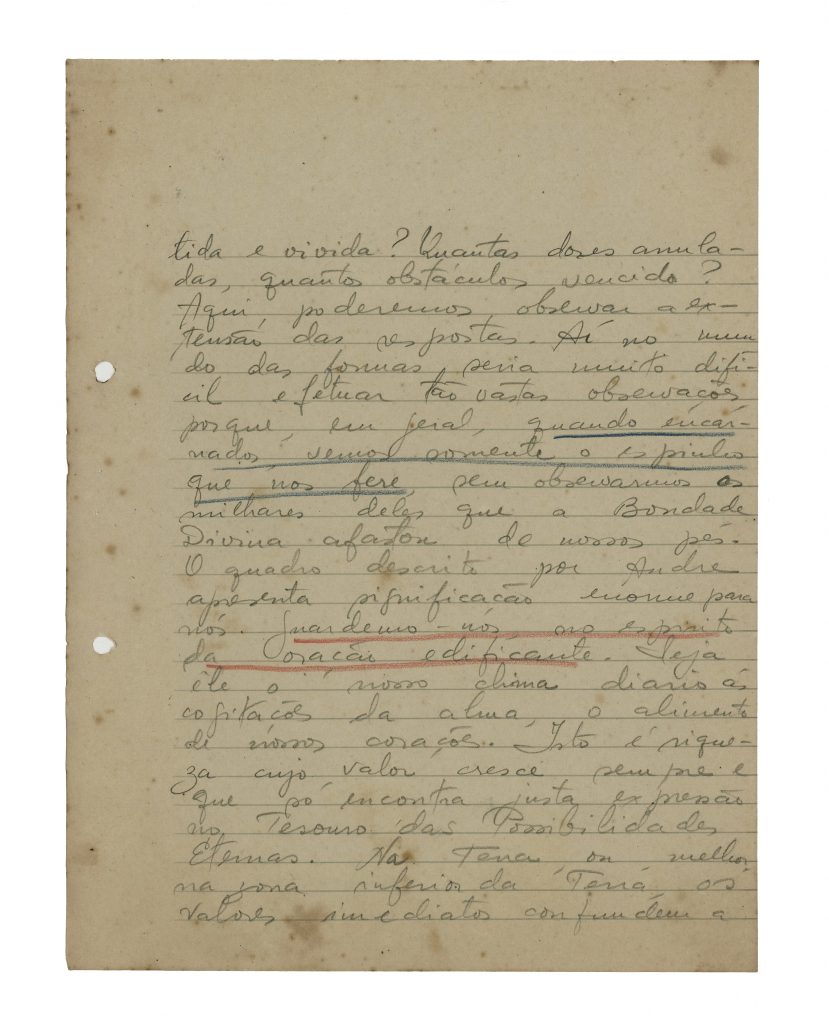 tida e vivida? Quantas dores anula-
das, quantos obstáculos vencido?
Aqui, poderemos observar a ex-
tensão das respostas. Aí no mun
do das formas, seria muito difí-
cil efetuar tão vastas observações
porque, em geral, quando encar-
nados, vemos sómente o espinho
que nos fere, sem observarmos os
milhares deles que a Bondade
Divina afastou de nossos pés.
O quadro descrito por André
apresenta significação enorme para
nós. Guardemo-nós, no espirito
da oração edificante. Seja
êle o nosso clima diario ás
cogitações da alma, o alimento
de nossos corações. Isto é rique-
za cujo valor cresce sempre e
que só encontra justa expressão
no Tesouro das Possibilidades
Eternas. Na Terra, ou melhor
na zona inferior da Terra os
valores imediatos confundem a